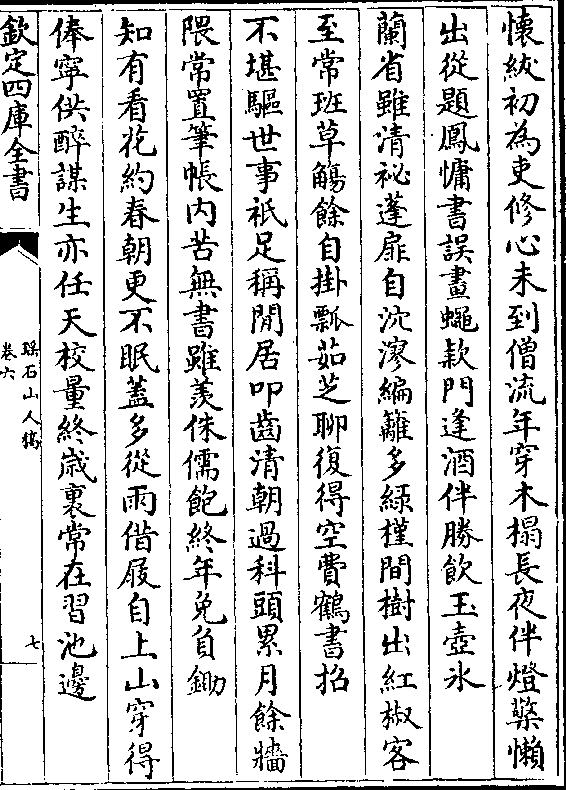 懷紱初為吏修心未到僧流年穿木榻長夜伴燈檠懶
出從題鳳慵書誤畫蠅欵門逢酒伴勝飲玉壺氷
蘭省雖清祕蓬扉自沉漻編籬多緑槿間樹出紅椒客
至常班草觴餘自掛瓢茹芝聊復得空費鶴書招
不堪驅世事祇足稱閒居叩齒清朝過科頭累月餘牆
隈常置筆帳内苦無書雖羨侏儒飽終年免負鋤
知有看花約春朝更不眠蓋多從雨借屐自上山穿得
俸寧供醉謀生亦任天校量終歲裏常在習池邊
欽定四庫全書
瑤石山人稿
卷六
七